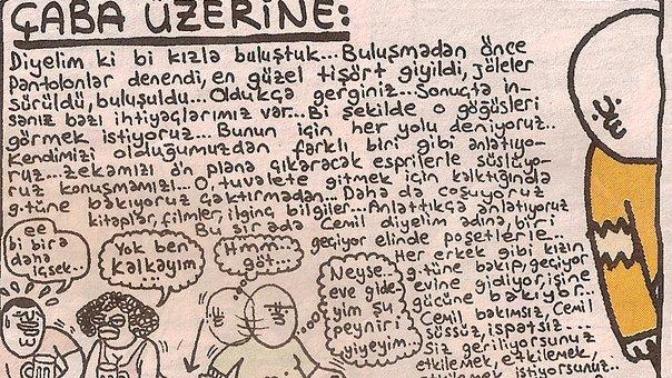 ÇABA ÜZERİNE:
Diyelim ki bi kızla buluştuk... Buluşmadan önce
Pantolonlar denendi, en güzel tişört giyildi, jöleler
sürüldü, buluşuldu... Oldukça gerginiz... Sonuçta in-
sanız bazı ihtiyaçlarımız var... Bi şekilde o göğüsleri
görmek istiyoruz... Bunun için her yolu deniyoruz..
Kendimizi olduğumuzdan farklı biri gibi anlatıyo-
ruz... Zekamızı ön plana çıkaracak esprilerle süslüyo-
ruz konuşmamızı... O, tuvalete gitmek için kalktığında
g.tüne bakıyoruz çaktırmadan... Daha da coşuyoruz
kitaplar, filmler, ilginç bilgiler... Anlattıkça anlatıyoruz
Bu sırada Cemil diyelim adına, biri
geçiyor elinde poşetlerle...
Her erkek gibi kızın
g.tüne bakıp, geçiyor
evine gidiyor, işine
gücüne bakıyor..
Cemil bakımsız, Cemil
süssüz, ispatsız...
Siz geriliyorsunuz
etkilemek, etkilemek,
etkilemek istiyorsunuz..
ee
bi bira
daha
içsek..
Yok ben
kalkayım
Hmm..
göt...
Neyse..
eve gide-
yim şu
peyniri
yiyeyim..